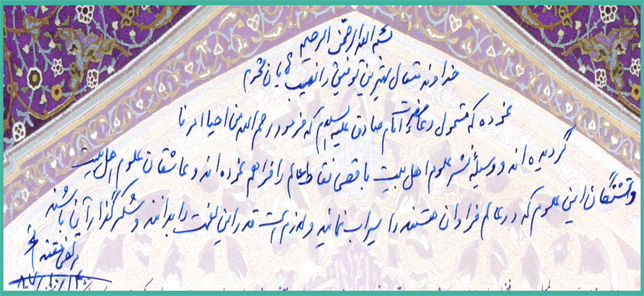 بسم الله الرحمن الرحیم
خداوند متعال بهترین توفیق را نصیب آقایان محترم
نموده که مشمول دعای امام صادق علیه السلام که فرمود رحم الله من احیا امرنا
گردیده اند و وسیلهٔ نشر علوم اهل بیت باقصی نقاط عالم را فراهم نموده اند و عاشقان علوم اهل بیت
و تشنگان این علوم که در عالم فراوان هستند را سیراب نمایند و لازم است قدر این نعمت را بدانند و شکرگذار آن باشند